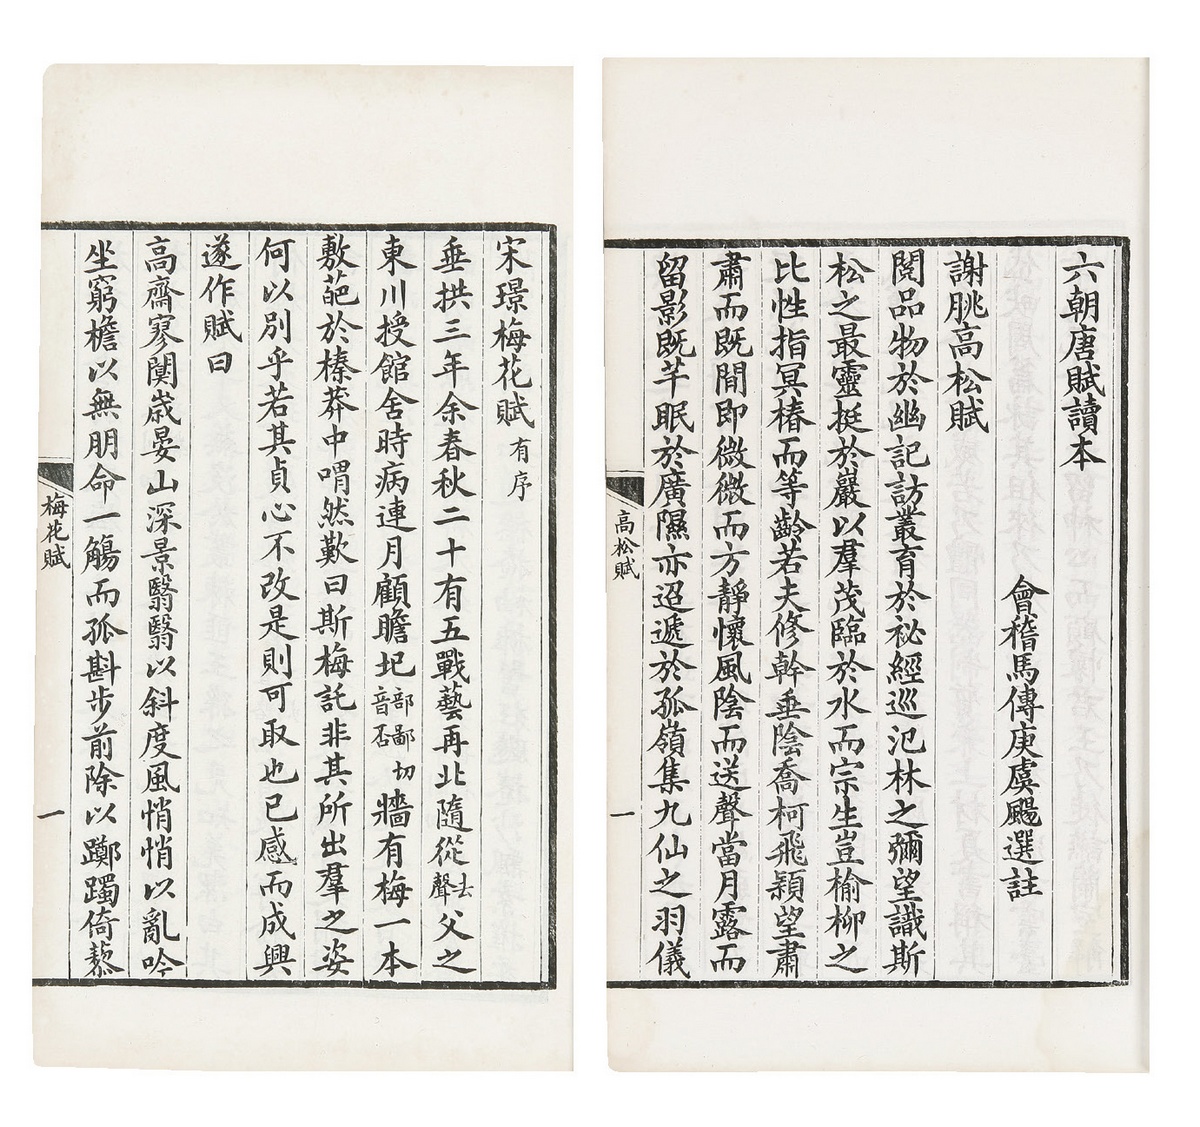 六朝唐賦讀本
會稽馬傳庚虞颺選註
謝朓高松賦
閱品物於幽記訪叢育於祕經巡氾林之彌望識斯
松之最靈挺於巖以羣茂臨於水而宗生豈榆柳之
比性指冥椿而等齡若夫修幹垂陰喬柯飛穎望肅
肅而既閒即微微而方靜懷風陰而送聲當月露而
留影既芊眠於廣隰亦迢遞於孤嶺集九仙之羽儀
高松賦
一
宋璟梅花賦有序
垂拱三年余春秋二十有五戰藝再北隨從去聲父之
東川授館舍時病連月顧瞻圮部鄙切音否牆有梅一本
敷葩於榛莽中喟然歎曰斯梅託非其所出羣之姿
何以別乎若其貞心不改是則可取也已感而成興
遂作賦曰
高齋寥闃歲晏山深景翳翳以斜度風悄悄以亂吟
坐窮檐以無朋命一觴而孤斟步前除以躑躅倚藜
梅花賦
一